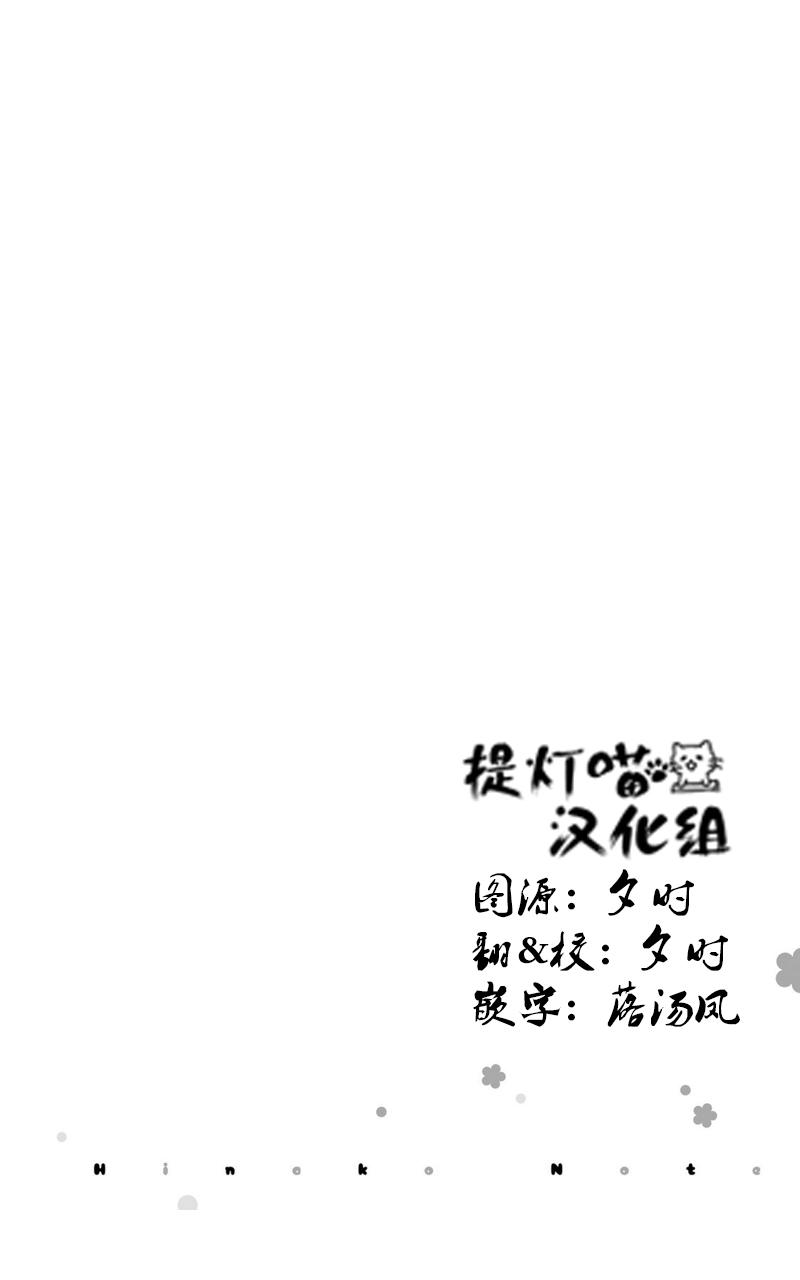 提灯喵
汉化组
图源：夕时
翻&校：夕时
嵌字：落汤凤
Hinako Note